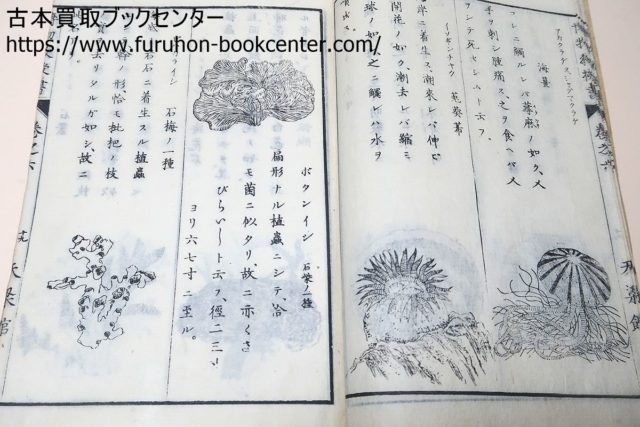 古本買取ブックセンター
https://www.furuhon-bookcenter.com/
海曇
ニ觸ルレバ蕁麻ノ如ク、人
ヲ刺シ腫痛ス之ヲ食ヘバ人
ヲシテ死セシムト云フ。
イソギンチャク 菟葵幕
岸ニ着生ス、潮來レバ伸ビ
開花ノ如ク、潮去レバ縮ミ
球ノ如シ之ニ觸レバ水ヲ
ボタンイシ 石梊ノ一種
扁形ナル植蟲ニシテ、恰
モ菌ニ似タリ、故ニ亦くさ
びらいしト云フ、徑二三寸
ヨリ六七寸ニ至ル。
石梅ノ一種
岩石ニ着生スル植蟲ニ
シテ幹ノ形恰モ枇杷ノ枝
去リタルガ如シ、故ニ